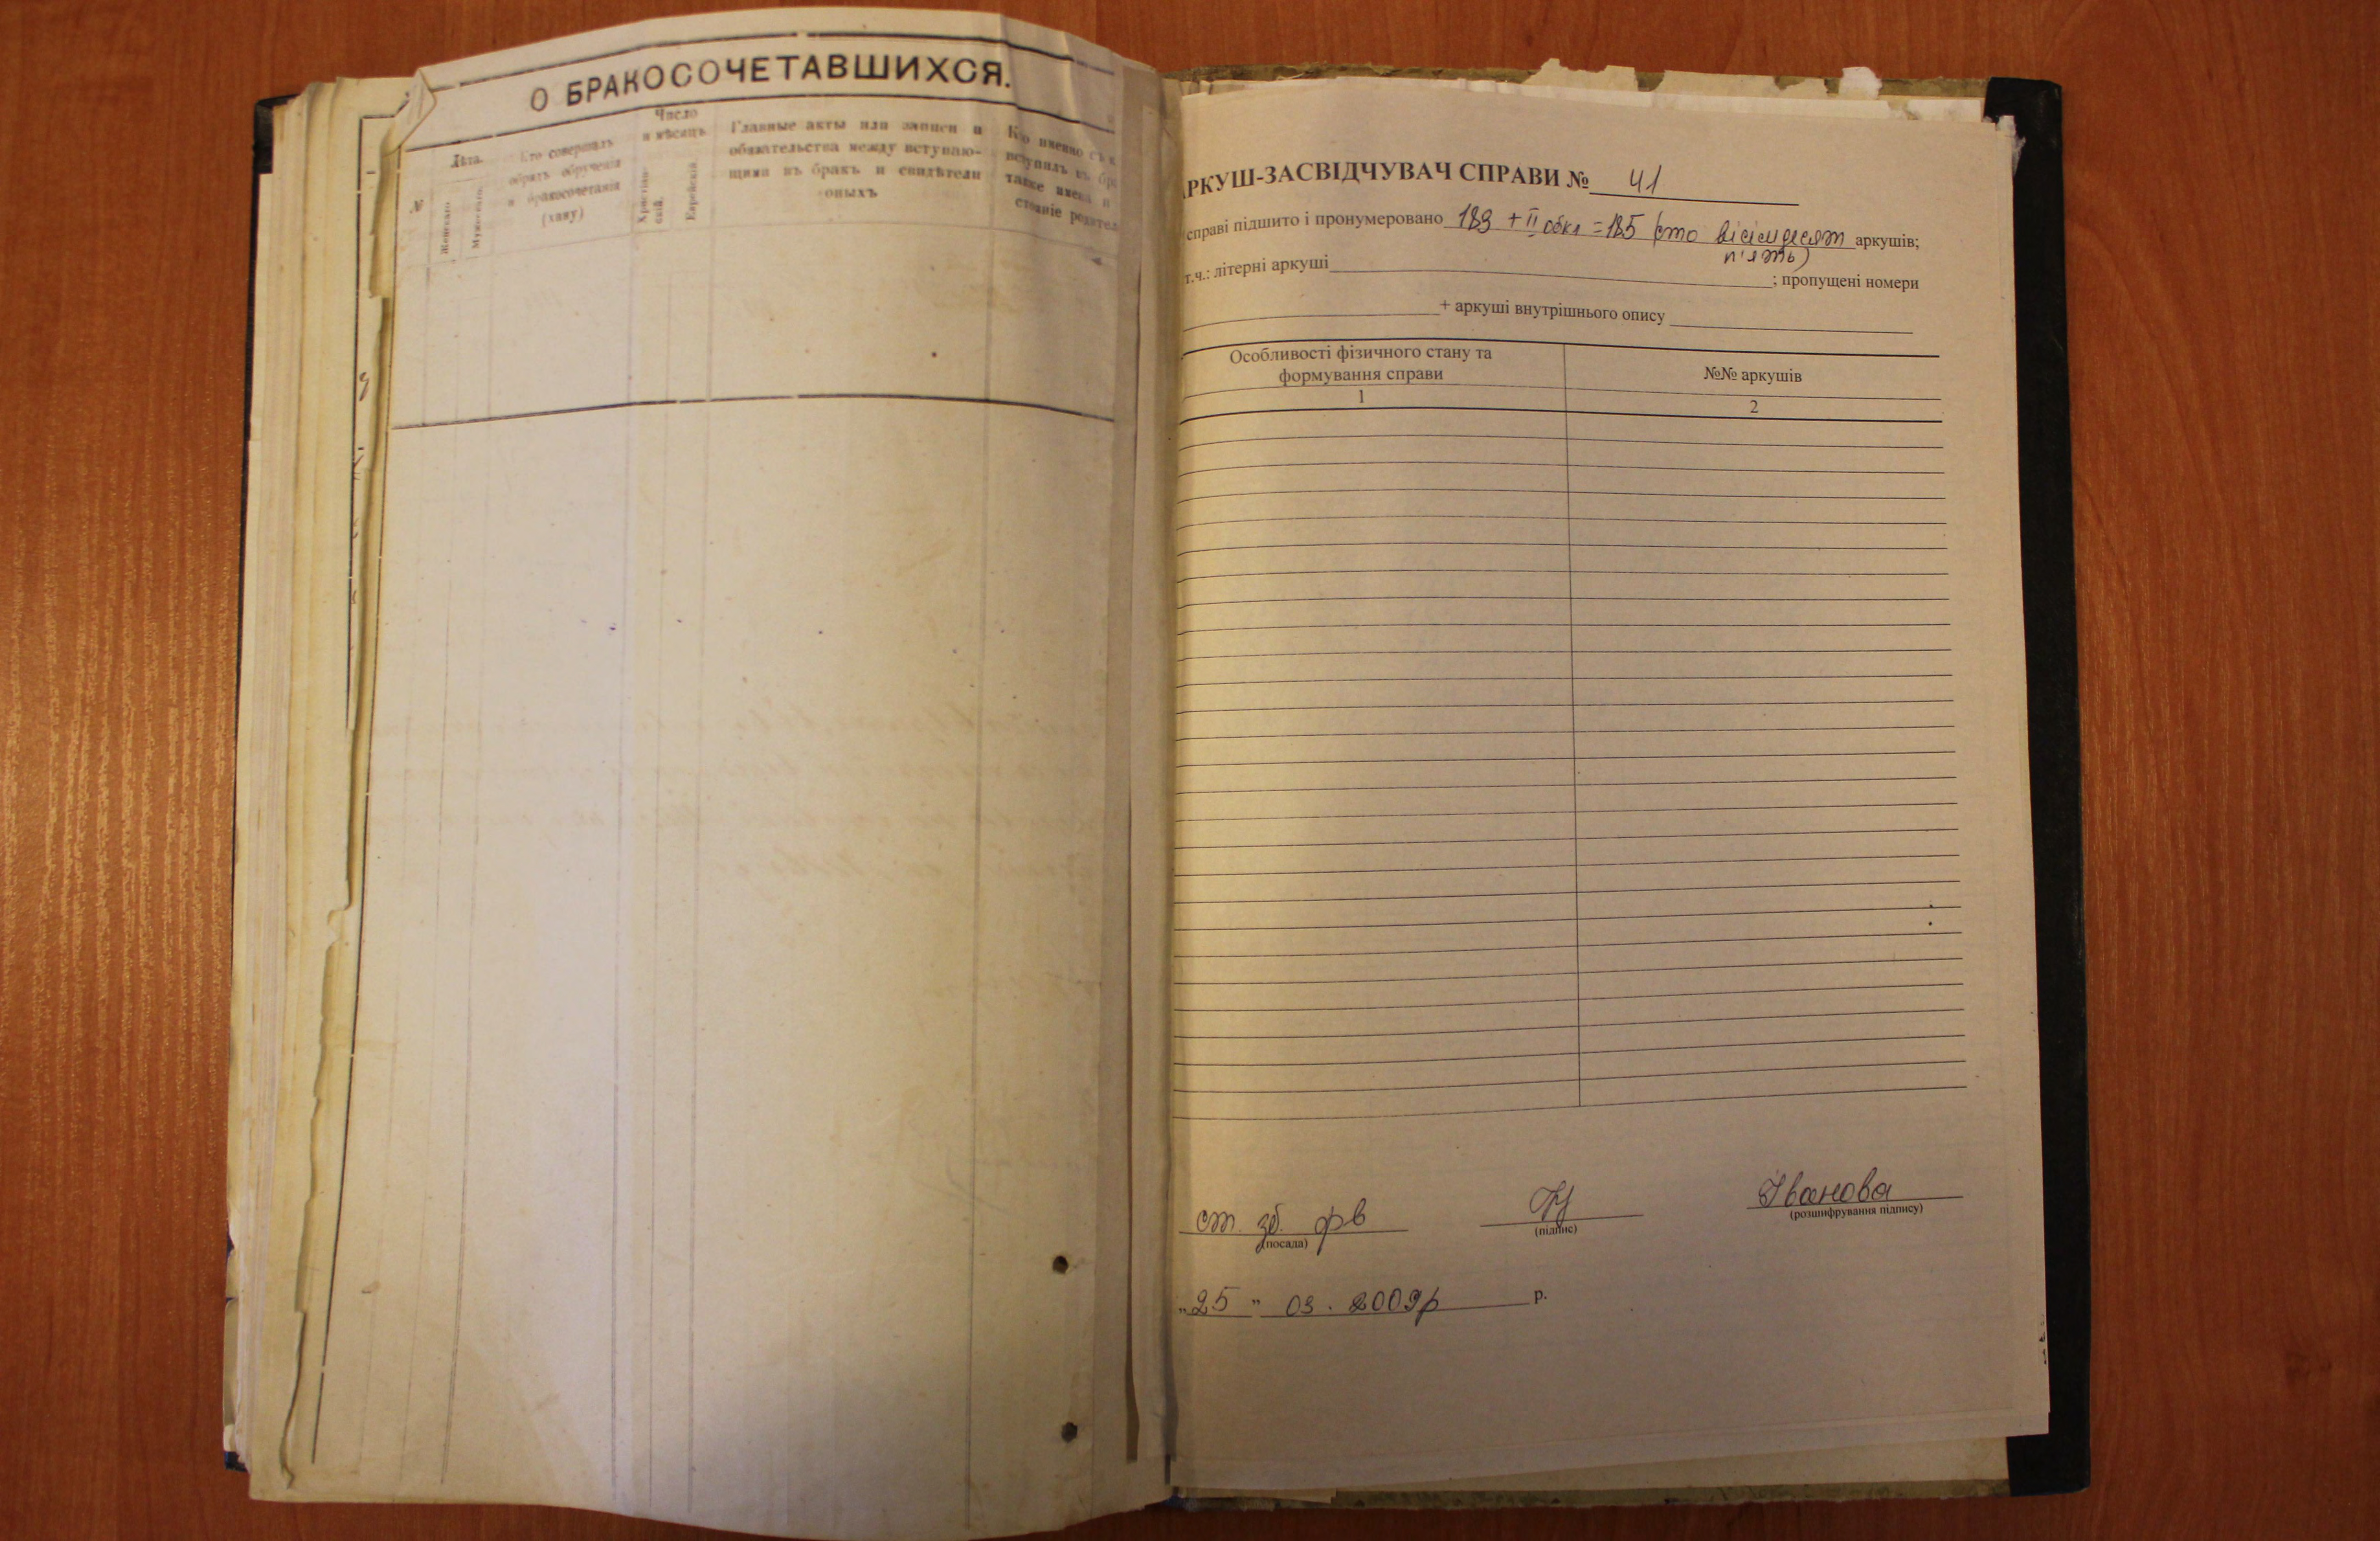 О БРАКОСОЧЕТАВШИХСЯ.
№
Лѣта.
Женскаго
Мужескаго
Кто совершалъ
обрядъ обрученія
и бракосочетанія
(хану)
Число
и мѣсяцъ
Христіан-
скій.
Еврейскій
Главные акты или записи и
обязательства между вступаю-
щими въ бракъ и свидѣтели
оныхъ
Кто именно съ к
вступилъ въ бра
также имена и
стояніе родител
АРКУШ-ЗАСВІДЧУВАЧ СПРАВИ № 41
справі підшито і пронумеровано 183 + II обкл = 185 (сто вісімдесят аркушів;
п'ять)
т.ч.: літерні аркуші ; пропущені номери
+ аркуші внутрішнього опису
Особливості фізичного стану та
формування справи
№№ аркушів
1
2
ст. зб. фв
(посада)
(підпис)
Іванова
(розшифрування підпису)
„25 " 03. 2009р р.